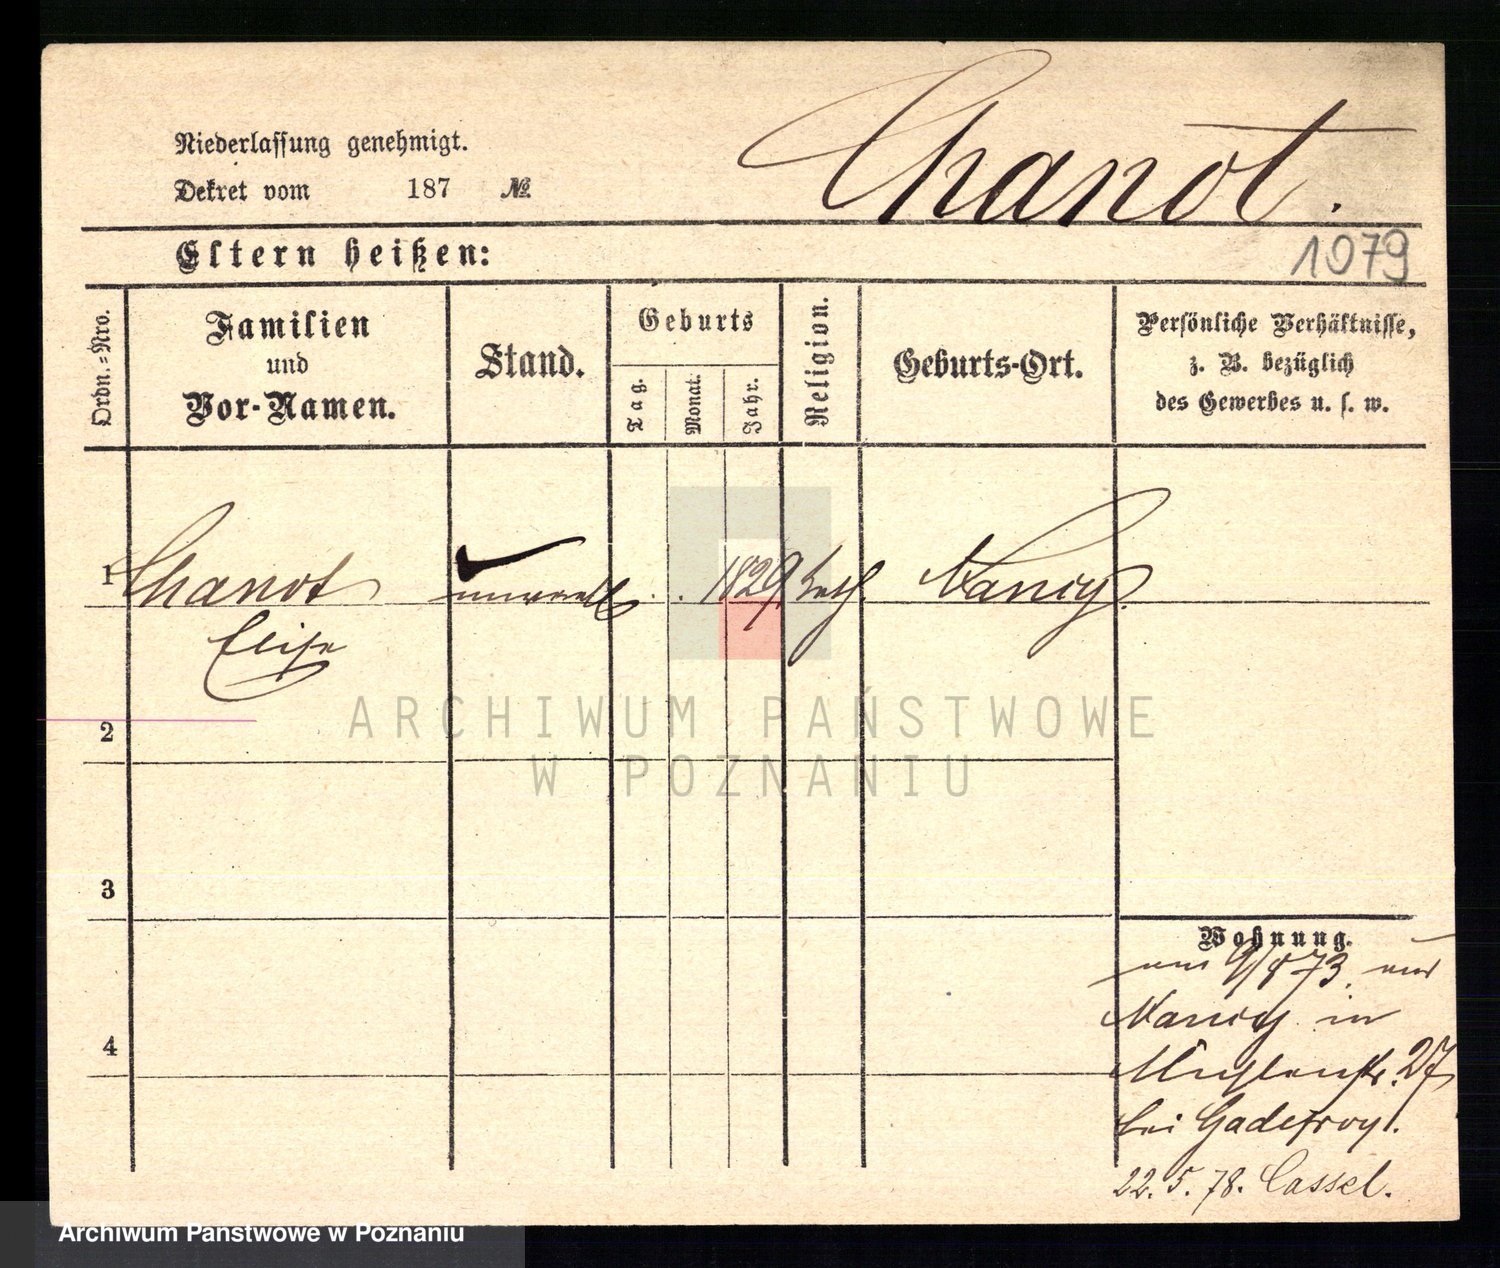 Chanot.
Niederlassung genehmigt.
Dekret vom 187 №
Eltern heißen:
1079
Ordn.-Nro.
Familien
und
Vor-Namen.
Stand.
Geburts
Tag.
Monat.
Jahr.
Religion.
Geburts-Ort.
Persönliche Verhältnisse,
z. B. bezüglich
des Gewerbes u. s. w.
1 Chanot unverelt. . . 1829 kath. Nancy.
Elise
2
ARCHIWUM PAŃSTWOWE
W POZNANIU
3
Wohnung.
9/8 73. aus
Nancy in
Mühlenstr. 27
bei Godefroy.
4
22. 5. 78. Cassel.
Archiwum Państwowe w Poznaniu